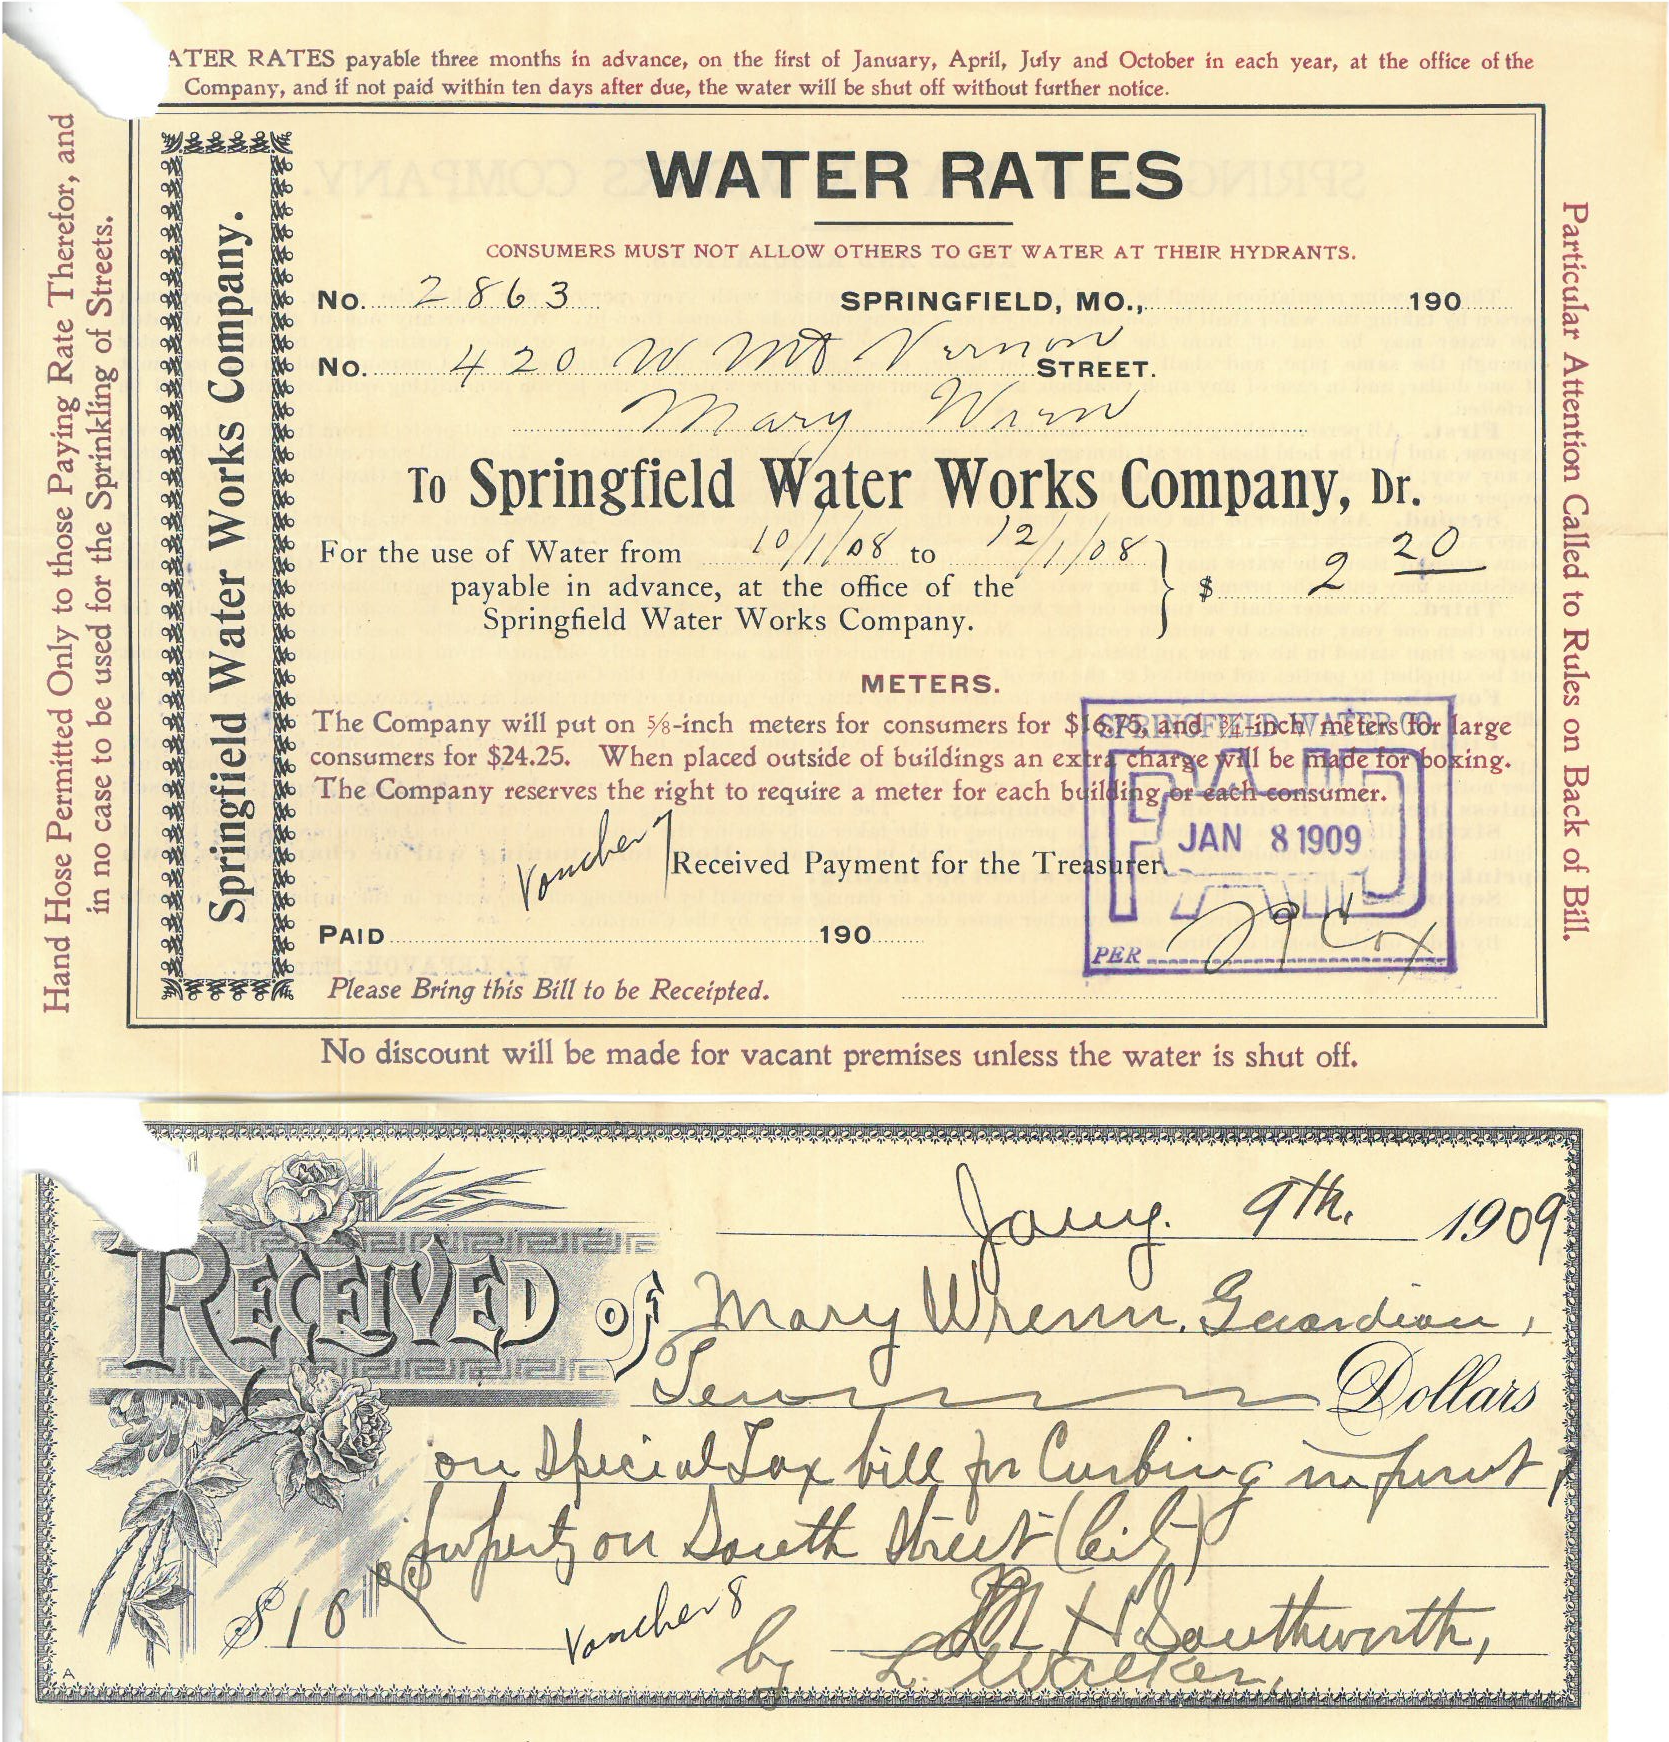 ATER RATES payable three months in advance, on the first of January, April, July and October in each year, at the office of the
Company, and if not paid within ten days after due, the water will be shut off without further notice.
Hand Hose Permitted Only to those Paying Rate Therefor, and
in no case to be used for the Sprinkling of Streets.
Springfield Water Works Company.
WATER RATES
CONSUMERS MUST NOT ALLOW OTHERS TO GET WATER AT THEIR HYDRANTS.
No. 2863 SPRINGFIELD, MO., 190
No. 420 W Mt Vernon STREET.
Mary Wren
To Springfield Water Works Company, Dr.
For the use of Water from 10/1/08 to 12/1/08
payable in advance, at the office of the
Springfield Water Works Company.
$ 2 20
METERS.
The Company will put on 5/8-inch meters for consumers for $16.75, and 3/4-inch meters for large
consumers for $24.25. When placed outside of buildings an extra charge will be made for boxing.
The Company reserves the right to require a meter for each building or each consumer.
Voucher 7
Received Payment for the Treasurer.
PAID 190
Please Bring this Bill to be Receipted.
SPRINGFIELD WATER CO.
PAID
JAN 8 1909
PER Cox
Particular Attention Called to Rules on Back of Bill.
No discount will be made for vacant premises unless the water is shut off.
Jany. 9th. 1909
RECEIVED OF Mary Wrenn, Guardian,
Ten Dollars
on Special Tax bill for Curbing in front
property on South Street (City)
$10 00
Voucher 8
M H Southworth,
by L. Walker,
A